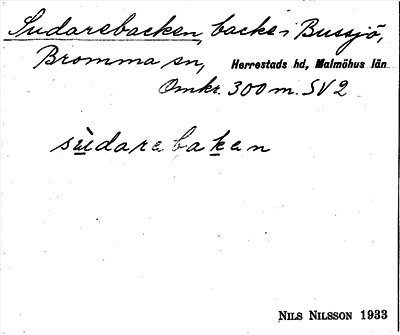 Sudarebacken, backe i Bussjö,
Bromma sn, Herrestads hd, Malmöhus län
Omkr. 300 m. SV 2
sùdarebaken
NILS NILSSON 1933